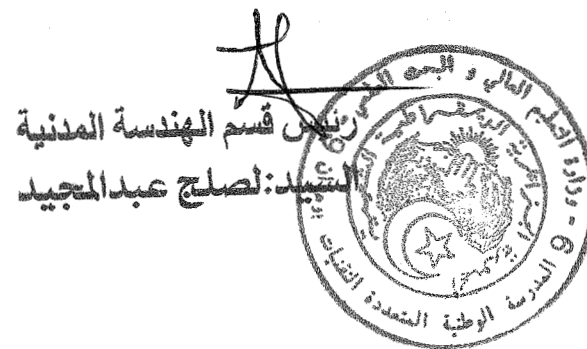 رئيس قسم الهندسة المدنية
السيد:لصلج عبدالمجيد
وزارة التعليم العالي و البحث العلمي
الجمهورية الجزائرية الديمقراطية الشعبية
9 - المدرسة الوطنية المتعددة التقنيات